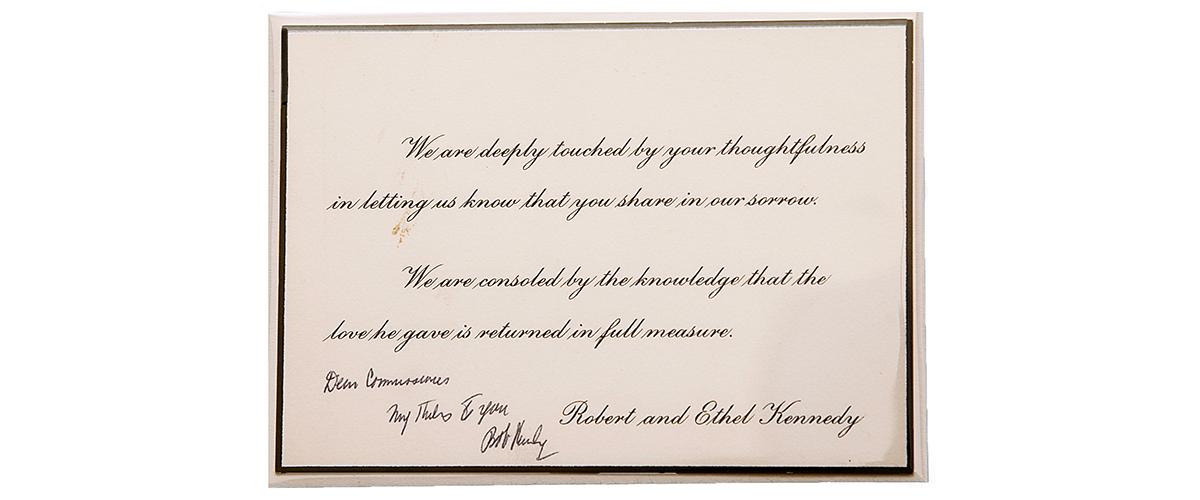 We are deeply touched by your thoughtfulness
in letting us know that you share in our sorrow.
We are consoled by the knowledge that the
love he gave is returned in full measure.
Dear
My to you
Robert and Ethel Kennedy
Bob